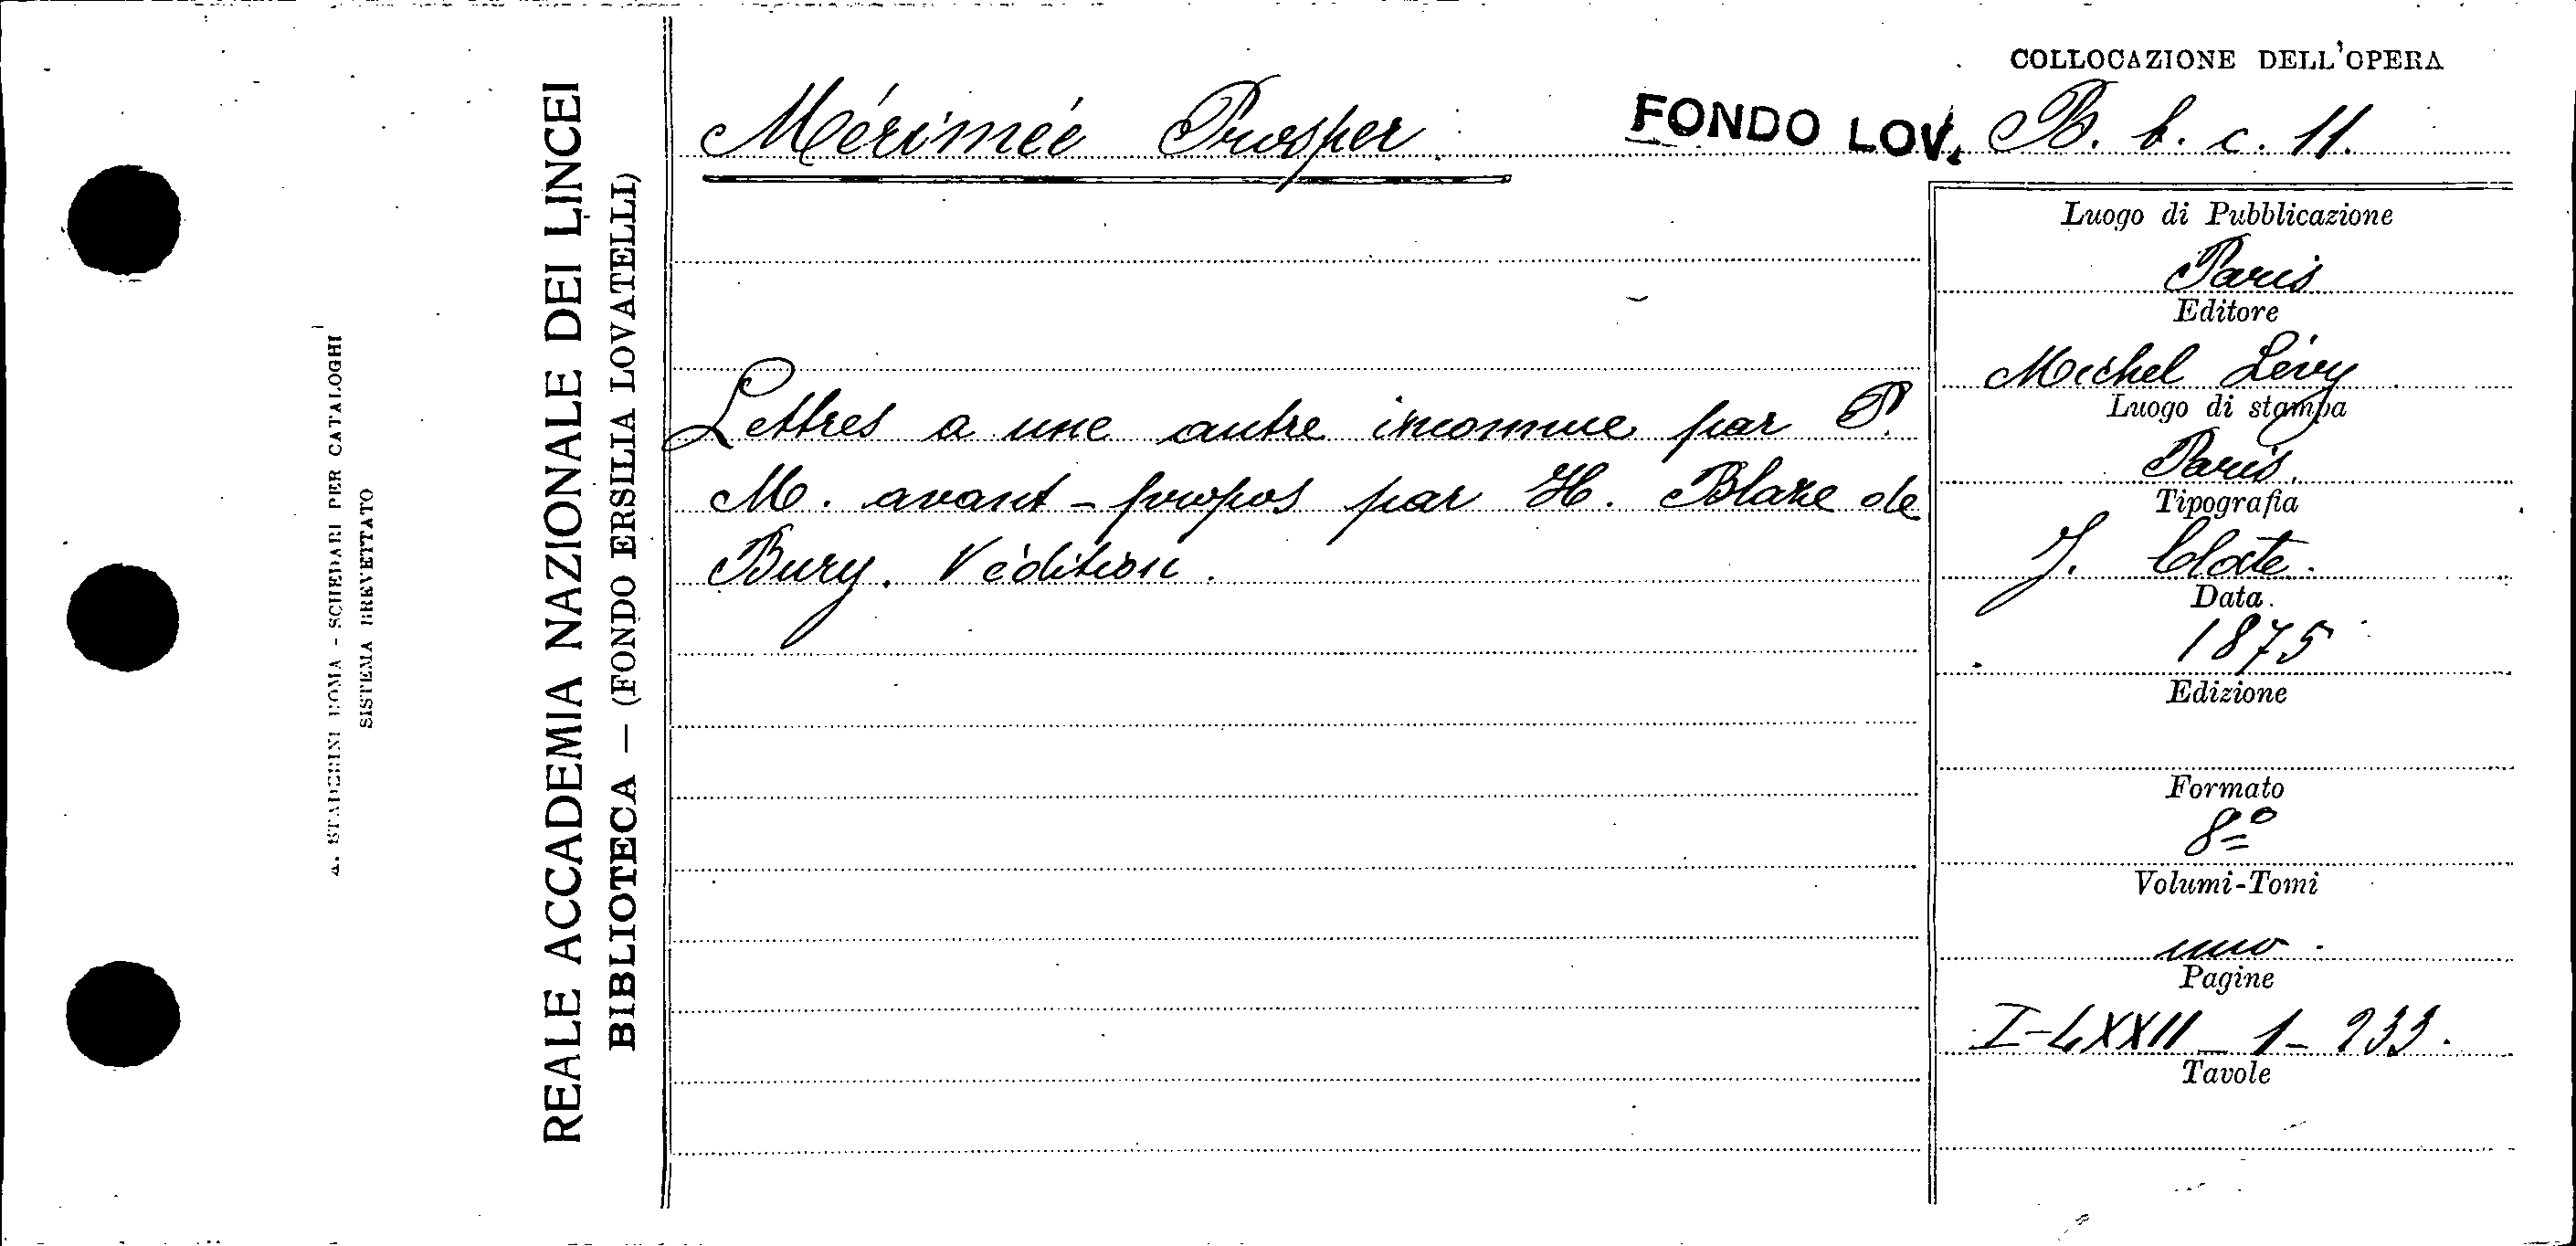 COLLOCAZIONE DELL'OPERA
Mérimée Prosper FONDO LOV. B. b. c. 11.
Lettres a une autre inconnue par P.
M. avant-propos par H. Blaze de
Bury. V édition.
Luogo di Pubblicazione
Paris
Editore
Michel Lévy
Luogo di stampa
Paris.
Tipografia
J. Clate.
Data
1875
Edizione
Formato
8º
Volumi-Tomi
uno.
Pagine
I-LXXII - 1 - 233.
Tavole
REALE ACCADEMIA NAZIONALE DEI LINCEI
BIBLIOTECA — (FONDO ERSILIA LOVATELLI)
A. STADERINI ROMA - SCHEDARI PER CATALOGHI
SISTEMA BREVETTATO